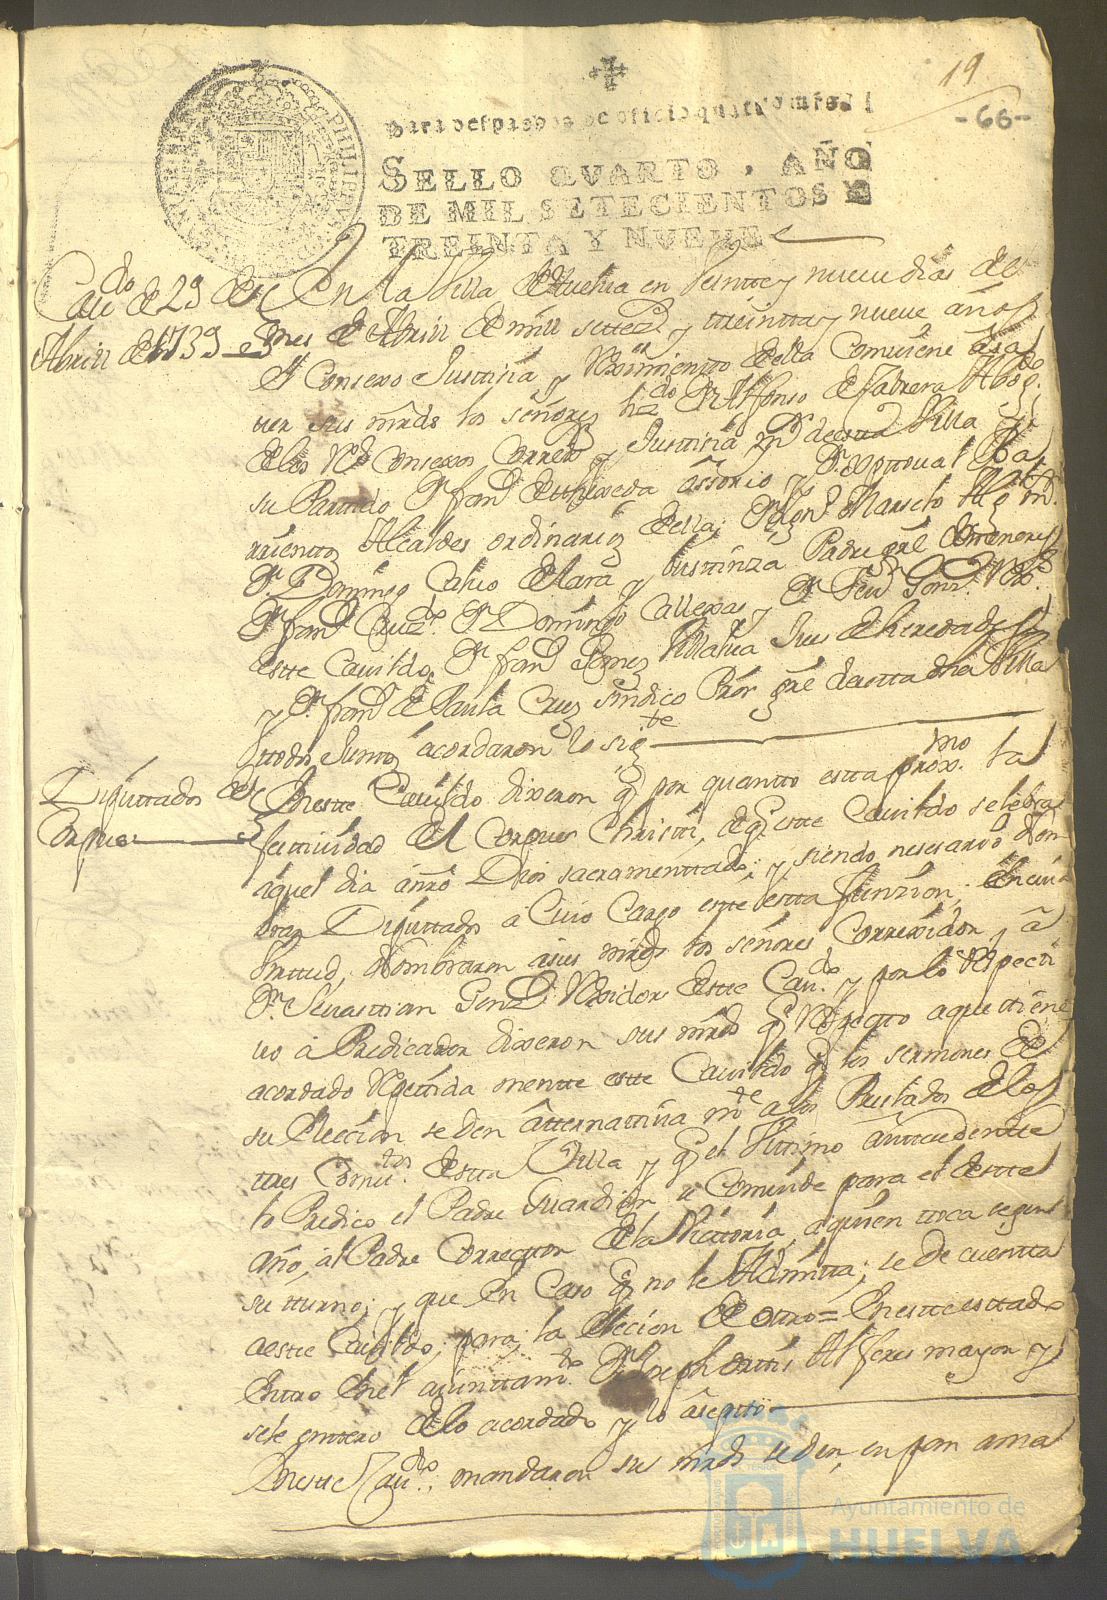 19
-66-
Para despachos de oficio quatro mrs.
SELLO QVARTO, AÑO
DE MIL SETECIENTOS Y
TREINTA Y NUEVE
PHILIPPVS
Cavdo de 29 de
Abrill de 1739
En la Villa de Huelva en Veintte y nueve dias de
mes de Abrill de mill settezs y treintta y nueve años
el Consexo Justticia y Reximiento de ella Comviene a sa
ver sus mrds los señores Lizdo Dn Alfonso de Cabrera Abogdo
de los Rs Consexos Correxr y Justticia mr de esta Villa y
su Parttido Dn Franco de Ossorio y Dn Xpttoval de Ba
rrienttos Alcaldes ordinarios de ella; Dn Marselo Alg mr
Dn Domingo Calvo de Lara y Busttinza Padre grl de Menores
Dn Franco Cruz Dn Domingo Callexas y Dn Sevn Gonz Rexs
estte Cavildo, Dn Franco Gomez Villalva Jues de heredades
y Dn Franco de Paula Cruz sindico Pror grl de estta dha Villa
ttodos Junttos acordaron lo sigte
Diputtados de
Corpus
En estte Cavildo dixeron q por quantto estta proxmo la
festtividad del Corpus Christti, q estte Cavildo selebra
aquel dia a nro Dios sacramenttado; y siendo nesesario nom
brar Diputtados a Cuio Cargo estte estta funzion; en cuia
virttud, nombraron a sus mrds los señores Correxidor y a
Dn Sevasttian Gonz Rexidor de estte Cavdo y por lo respectti
vo a Predicador dixeron sus mrds q respectto a que ttiene
acordado repettida mentte estte Cavildo q los sermones de
su Eleccion se den altternattiva mte a los Prelados de los
ttres Comvttos de estta Villa y q el Ulttimo anttecedentte
lo Predico el Padre Guardian se Comvide para el de estte
año, al Padre Correcttor de la Victtoria, a quien ttoca segun
su tturno; y que en Caso q no le Admitta; se de cuentta
a estte Cavildo, para la Eleccion de ottro = En estte esttado
Enttro en el ayunttamto Dn Joseph Orttis Alferes mayor y
se le entero de lo acordado y lo aseptto
En estte Cavdo mandaron sus mrds se den, en pan ama
Ayuntamiento de
HUELVA